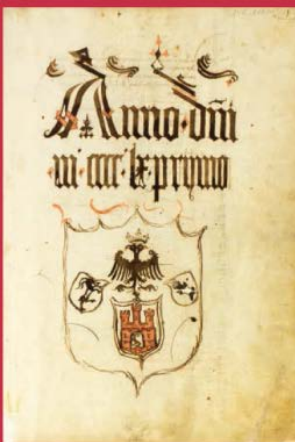 Anno dm̄i
m cccc lx prymo